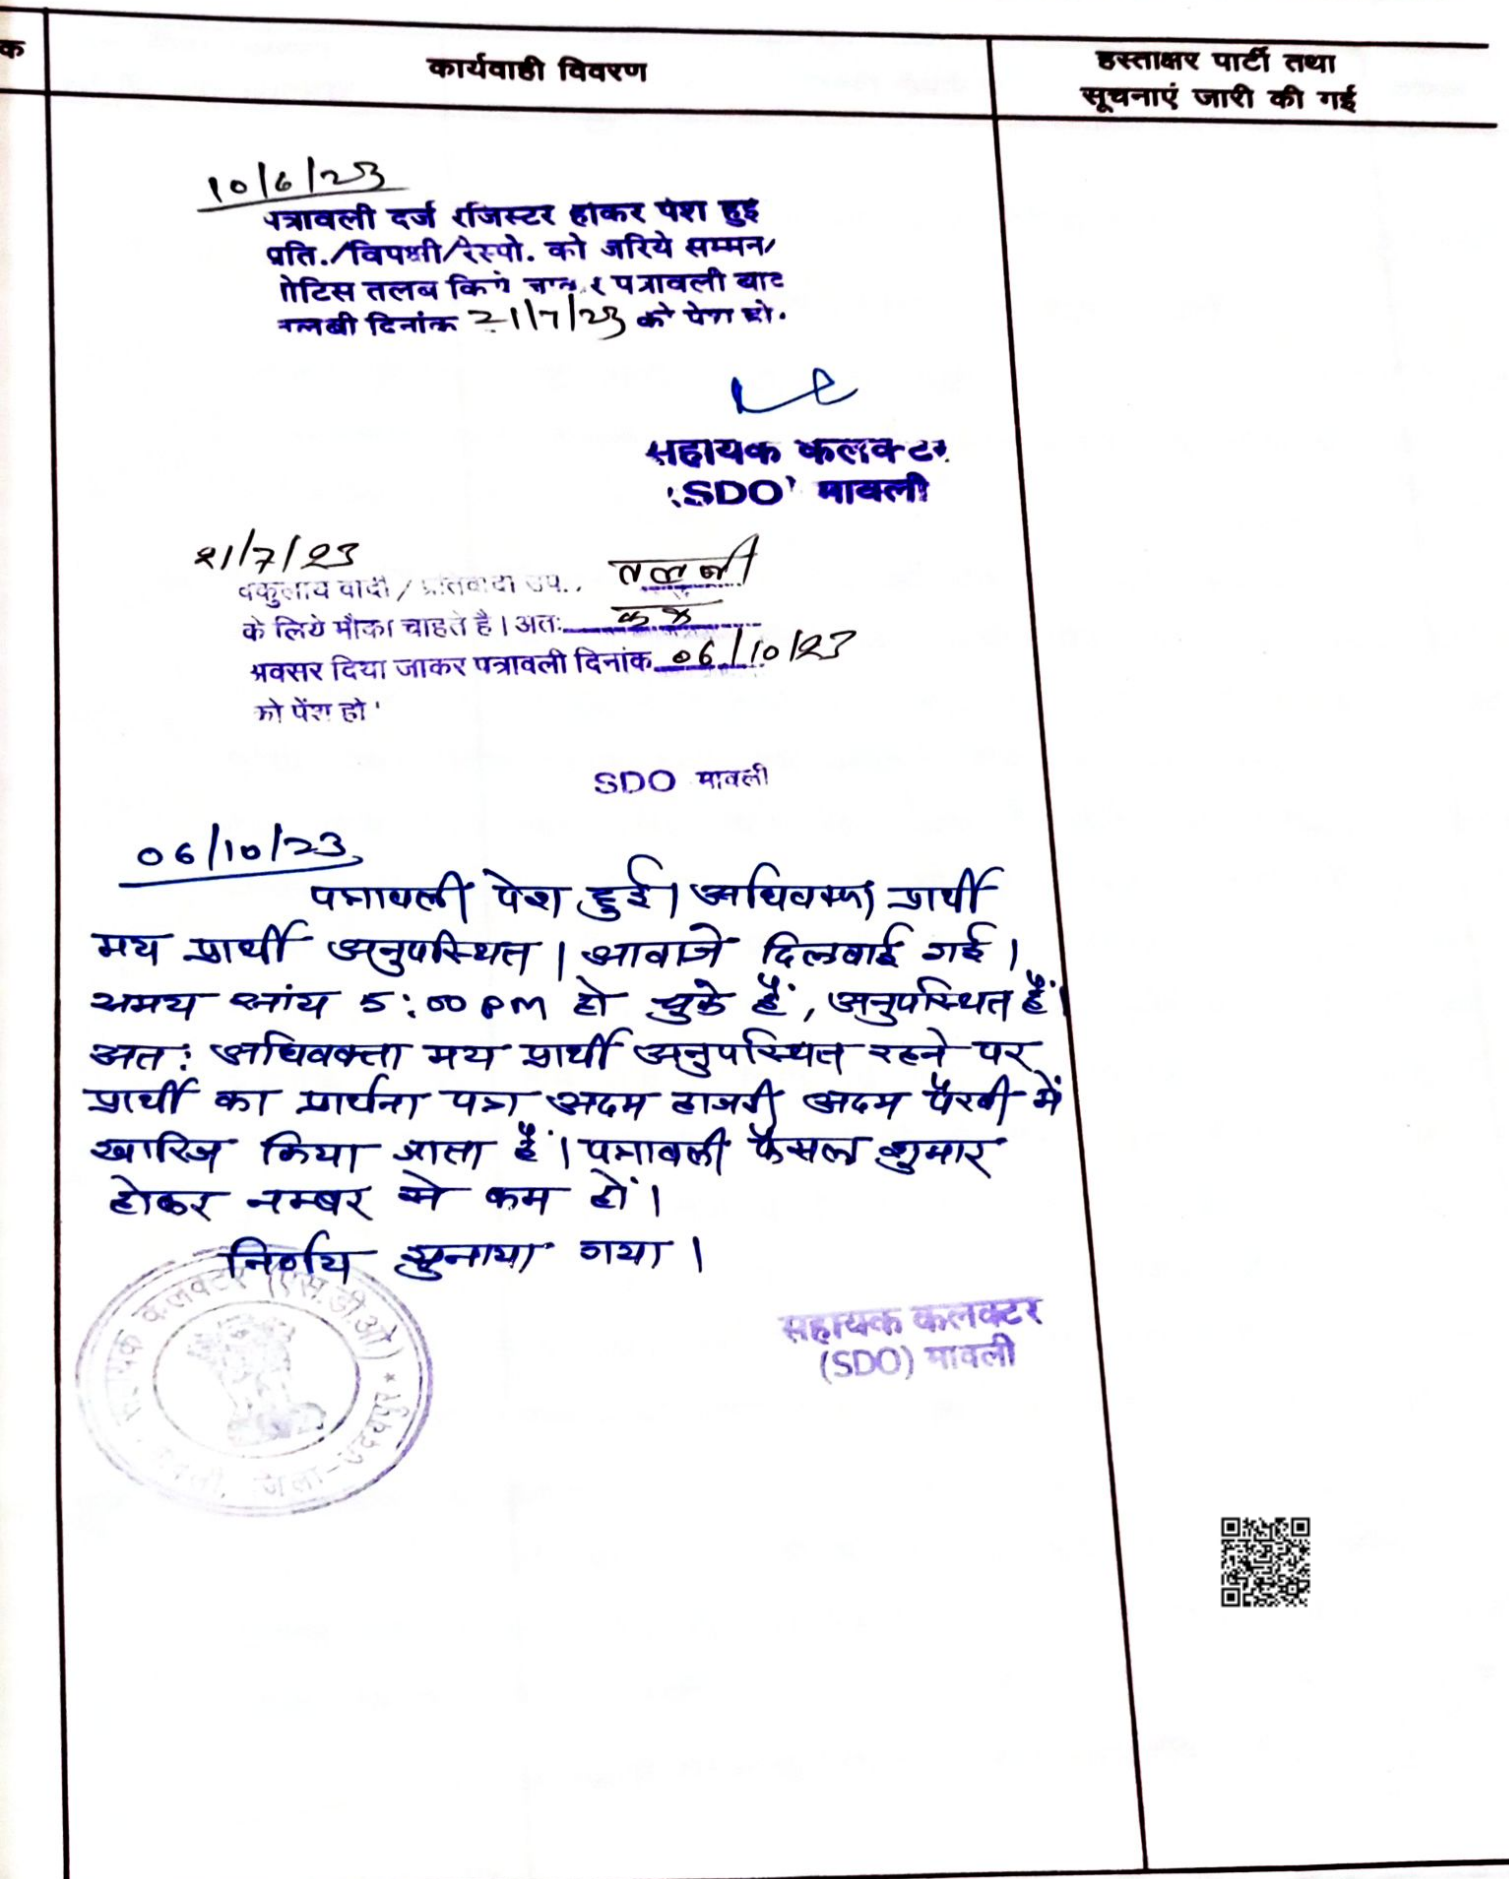 क
कार्यवाही विवरण
हस्ताक्षर पार्टी तथा
सूचनाएं जारी की गई
10/6/23
पत्रावली दर्ज रजिस्टर होकर पेश हुई
प्रति./विपक्षी/रेस्पो. को जरिये सम्मन/
नोटिस तलब किये पत्रावली बाद
तलबी दिनांक 21/7/23 को पेश हो.
सहायक कलक्टर
(SDO) मावली
21/7/23
वकुलाय वादी / प्रतिवादी उप.. तलबी
के लिये मौका चाहते है। अतः
अवसर दिया जाकर पत्रावली दिनांक 06/10/23
को पेंश हो
SDO मावली
06/10/23
पत्रावली पेश हुई। अधिवक्ता प्रार्थी
मय प्रार्थी अनुपस्थित। आवाजे दिलवाई गई।
समय सांय 5:00 PM हो चुके हैं, अनुपस्थित हैं।
अत: अधिवक्ता मय प्रार्थी अनुपस्थित रहने पर
प्रार्थी का प्रार्थना पत्र अदम हाजरी अदम पैरवी में
खारिज किया जाता हैं। पत्रावली फैसल शुमार
होकर नम्बर से कम हों।
निर्णय सुनाया गया।
सहायक कलक्टर
(SDO) मावली
सहायक कलक्टर (एस.डी.ओ)
मावली, जिला-उदयपुर *